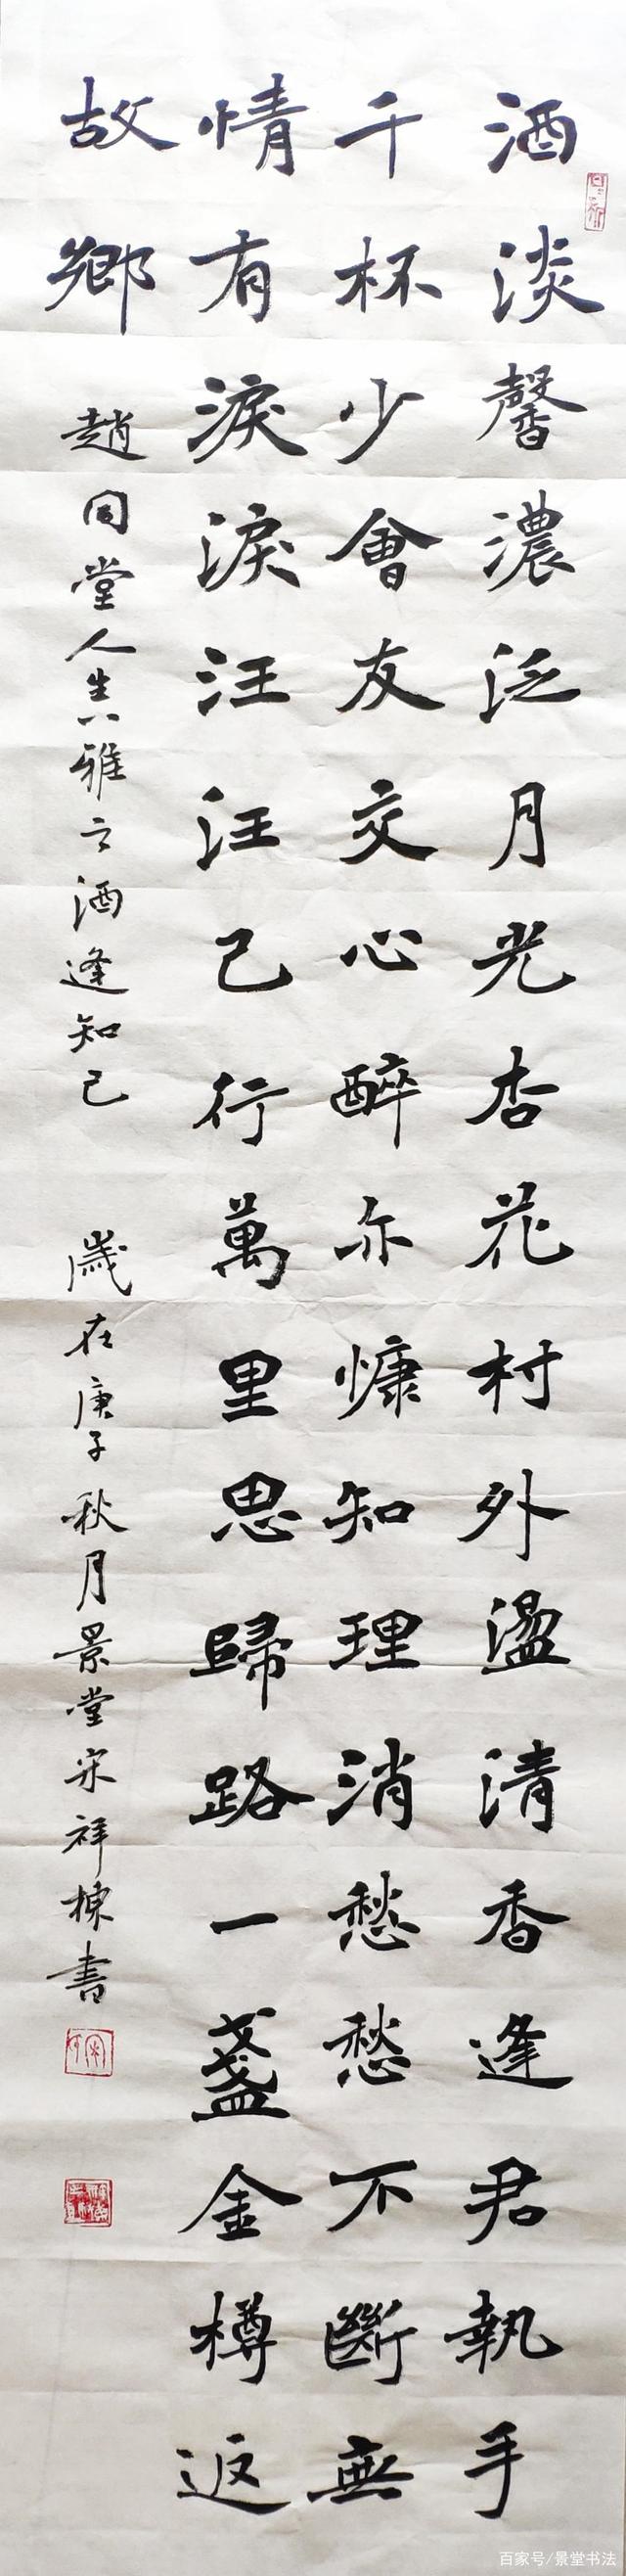 酒淡馨濃泛月光杏花村外盪清香逢君執手
千杯少會友交心醉亦慷知理消愁愁不斷無
情有淚淚汪汪己行萬里思歸路一盞金樽返
故鄉
趙同堂人生八雅之酒逢知己
歲在庚子秋月景堂宋祥棟书
百家号/景堂书法